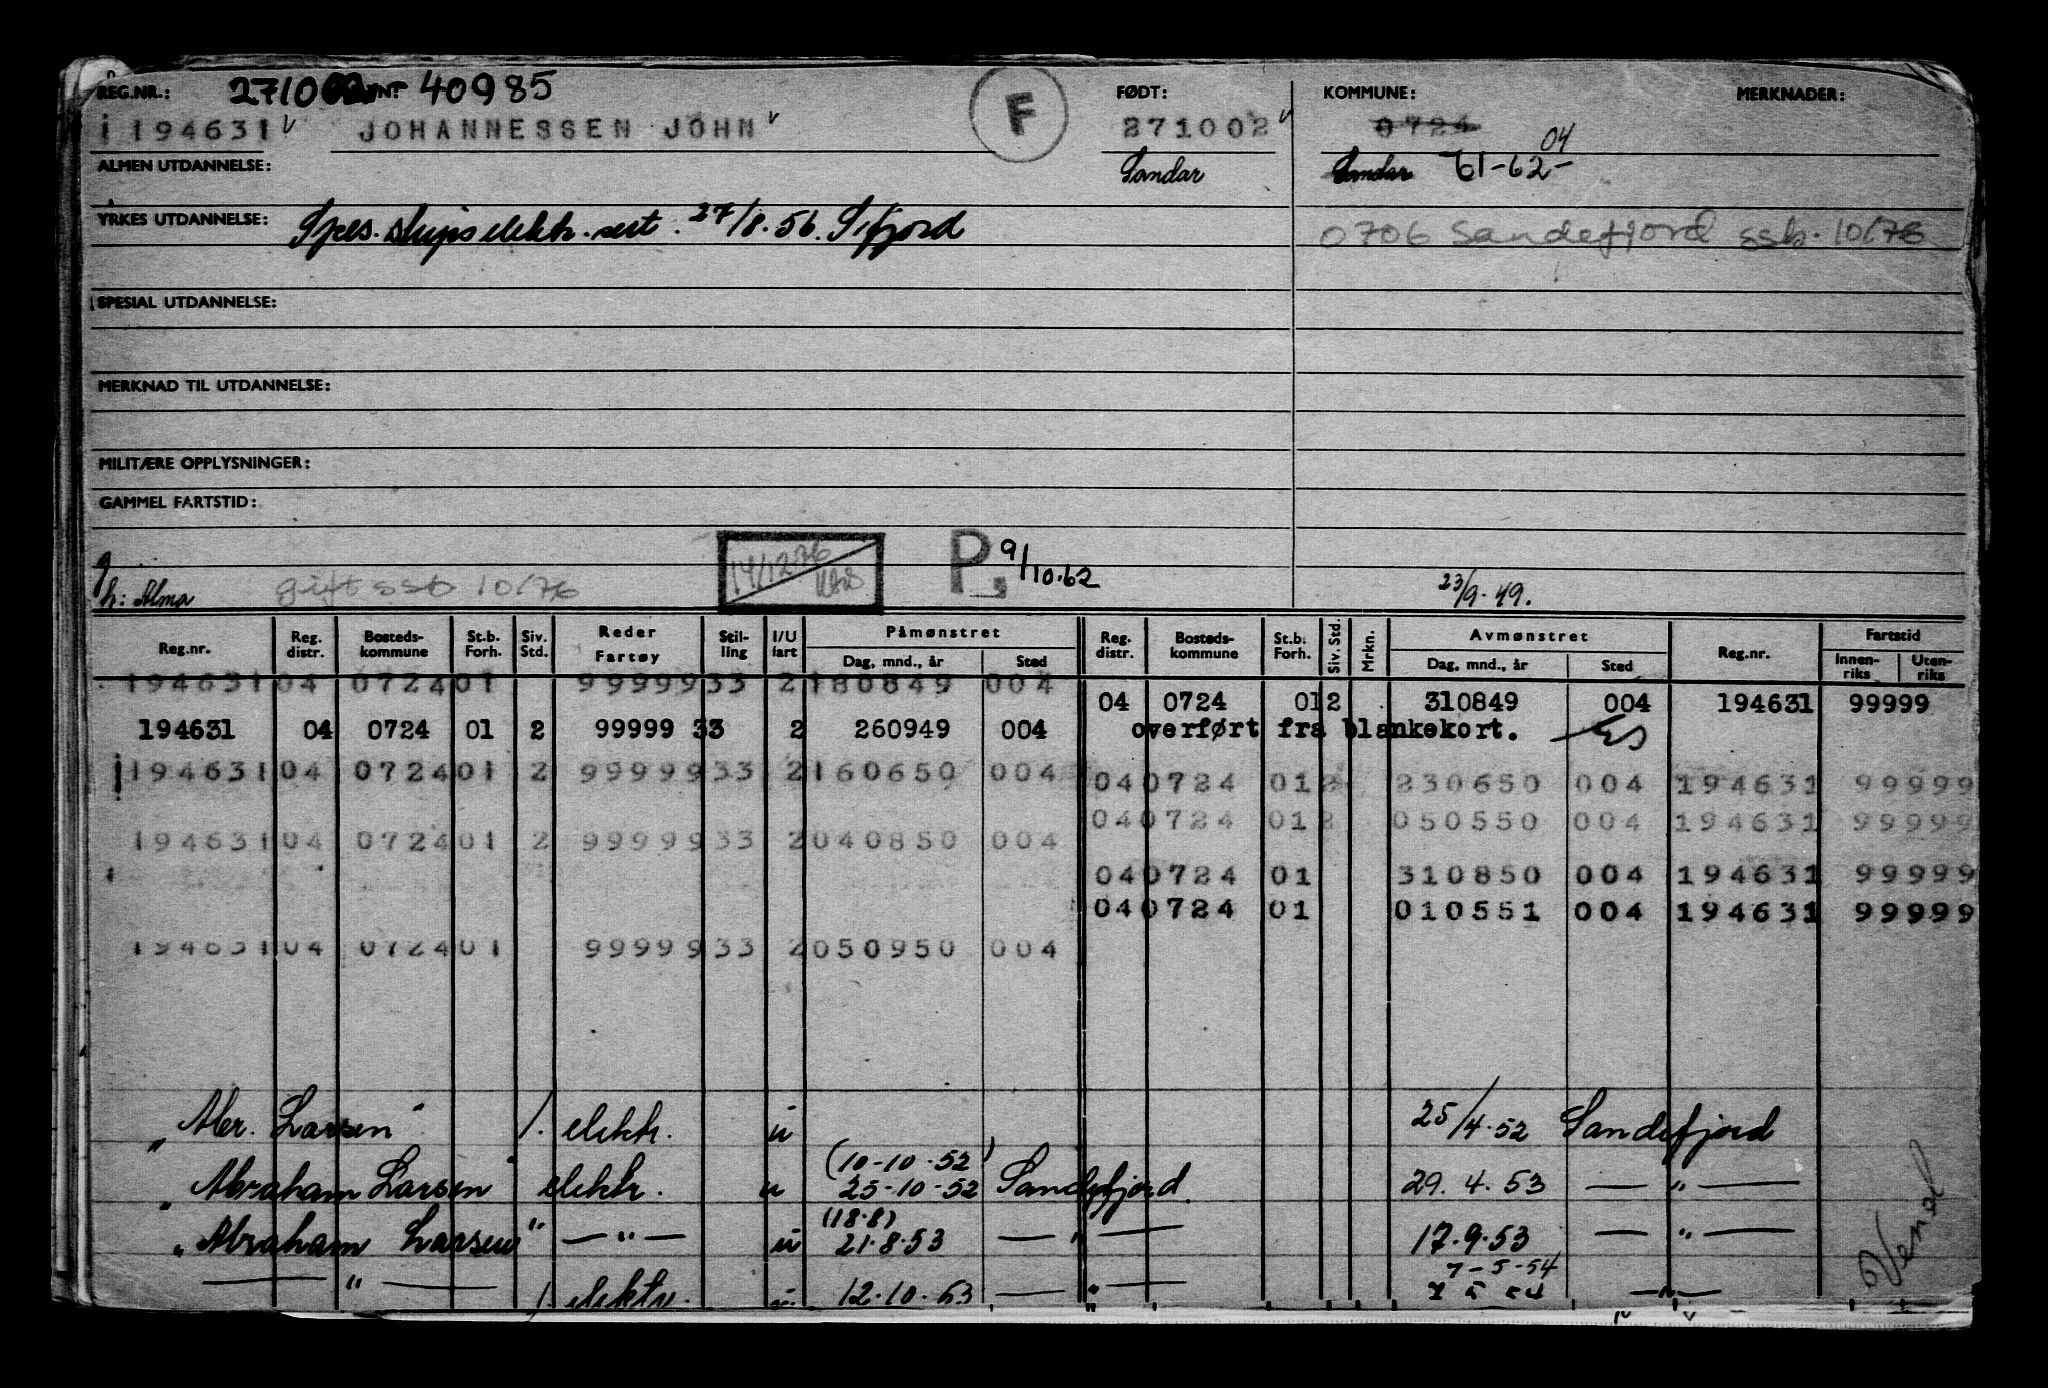 REG.NR.: 271002 NR 40985 FØDT: KOMMUNE: MERKNADER:
194631 JOHANNESSEN JOHN F 271002 0724 04
ALMEN UTDANNELSE: Sandar Sandar 61-62-
YRKES UTDANNELSE: Spes. skips elektr. sert. 27/8.56. S.fjord 0706 Sandefjord ssb. 10/76
SPESIAL UTDANNELSE:
MERKNAD TIL UTDANNELSE:
MILITÆRE OPPLYSNINGER:
GAMMEL FARTSTID:
g
h: Alma gift ssb 10/76 14/12-76 P. 9/10.62 23/9.49.
Reg.nr. Reg. distr. Bosteds-kommune St.b. Forh. Siv. Std. Reder Fartøy Stil-ling I/U fart Påmønstret Dag, mnd., år Sted Reg. distr. Bosteds-kommune St.b. Forh. Siv. Std. Mrkn. Avmønstret Dag, mnd., år Sted Reg.nr. Fartstid Innen-riks Uten-riks
194631 04 0724 01 99999 33 2 180849 004
04 0724 01 2 310849 004 194631 99999
194631 04 0724 01 2 99999 33 2 260949 004 overført fra blankekort.
194631 04 0724 01 2 99999 33 2 160650 004 04 0724 01 2 230650 004 194631 99999
04 0724 01 2 050550 004 194631 99999
194631 04 0724 01 2 99999 33 2 040850 004
04 0724 01 310850 004 194631 99999
04 0724 01 010551 004 194631 99999
194631 04 0724 01 99999 33 2 050950 004
"Abr. Larsen" 1. elektr. u 25/4.52 Sandefjord
(10-10-52)
"Abraham Larsen" elektr. u 25-10-52 Sandefjord. 29.4.53 — " —
(18.8)
"Abraham Larsen" — " — u 21.8.53 — " — 17.9.53 — " —
7-5-54
— " — 1. elektr. u. 12.10.53 — " — 7 5 54 — " —